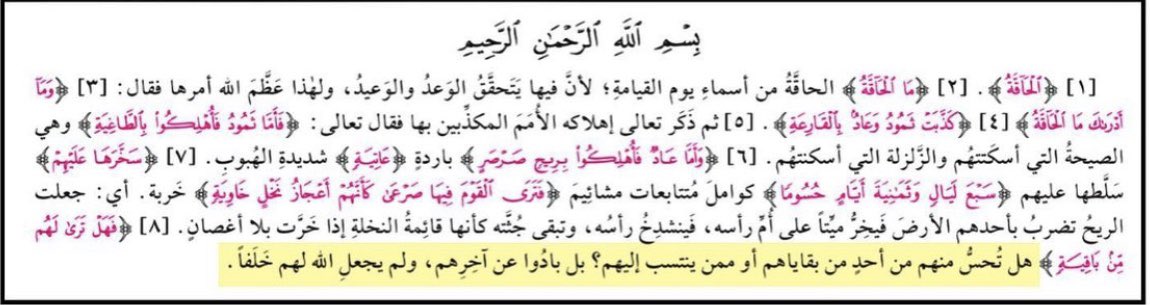 بِسْمِ اللَّهِ الرَّحْمَٰنِ الرَّحِيمِ
[١] ﴿الْحَاقَّةُ﴾. [٢] ﴿مَا الْحَاقَّةُ﴾ الحاقَّةُ من أسماءِ يوم القيامةِ؛ لأنَّ فيها يَتَحقَّقُ الوَعدُ والوَعيدُ، ولهٰذا عَظَّمَ الله أمرها فقال: [٣] ﴿وَمَآ
أَدْرَىٰكَ مَا الْحَاقَّةُ﴾ [٤] ﴿كَذَّبَتْ ثَمُودُ وَعَادٌ بِالْقَارِعَةِ﴾. [٥] ثم ذَكَر تعالى إهلاكه الأُمَمَ المكذِّبين بها فقال تعالى: ﴿فَأَمَّا ثَمُودُ فَأُهْلِكُوا بِالطَّاغِيَةِ﴾ وهي
الصيحةُ التي أسكَتتهُم والزَّلزلة التي أسكنتهُم. [٦] ﴿وَأَمَّا عَادٌ فَأُهْلِكُوا بِرِيحٍ صَرْصَرٍ﴾ باردةٍ ﴿عَاتِيَةٍ﴾ شديدةِ الهُبوبِ. [٧] ﴿سَخَّرَهَا عَلَيْهِمْ﴾
سَلَّطها عليهم ﴿سَبْعَ لَيَالٍ وَثَمَٰنِيَةَ أَيَّامٍ حُسُومًا﴾ كواملَ مُتتابعات مشائِيمَ ﴿فَتَرَى الْقَوْمَ فِيهَا صَرْعَىٰ كَأَنَّهُمْ أَعْجَازُ نَخْلٍ خَاوِيَةٍ﴾ خَربة. أي: جعلت
الريحُ تضربُ بأحدهم الأرضَ فيَخِرُّ ميِّتاً على أُمِّ رأسه، فَينشدِخُ رأسُه، وتبقى جُثَّته كأنها قائِمةُ النخلةِ إذا خَرَّت بلا أغصانٍ. [٨] ﴿فَهَلْ تَرَىٰ لَهُم
مِّنۢ بَاقِيَةٍ﴾ هل تُحسُّ منهم من أحدٍ من بقاياهم أو ممن ينتسب إليهم؟ بل بادُوا عن آخِرِهم، ولم يجعلِ الله لهم خَلَفاً.